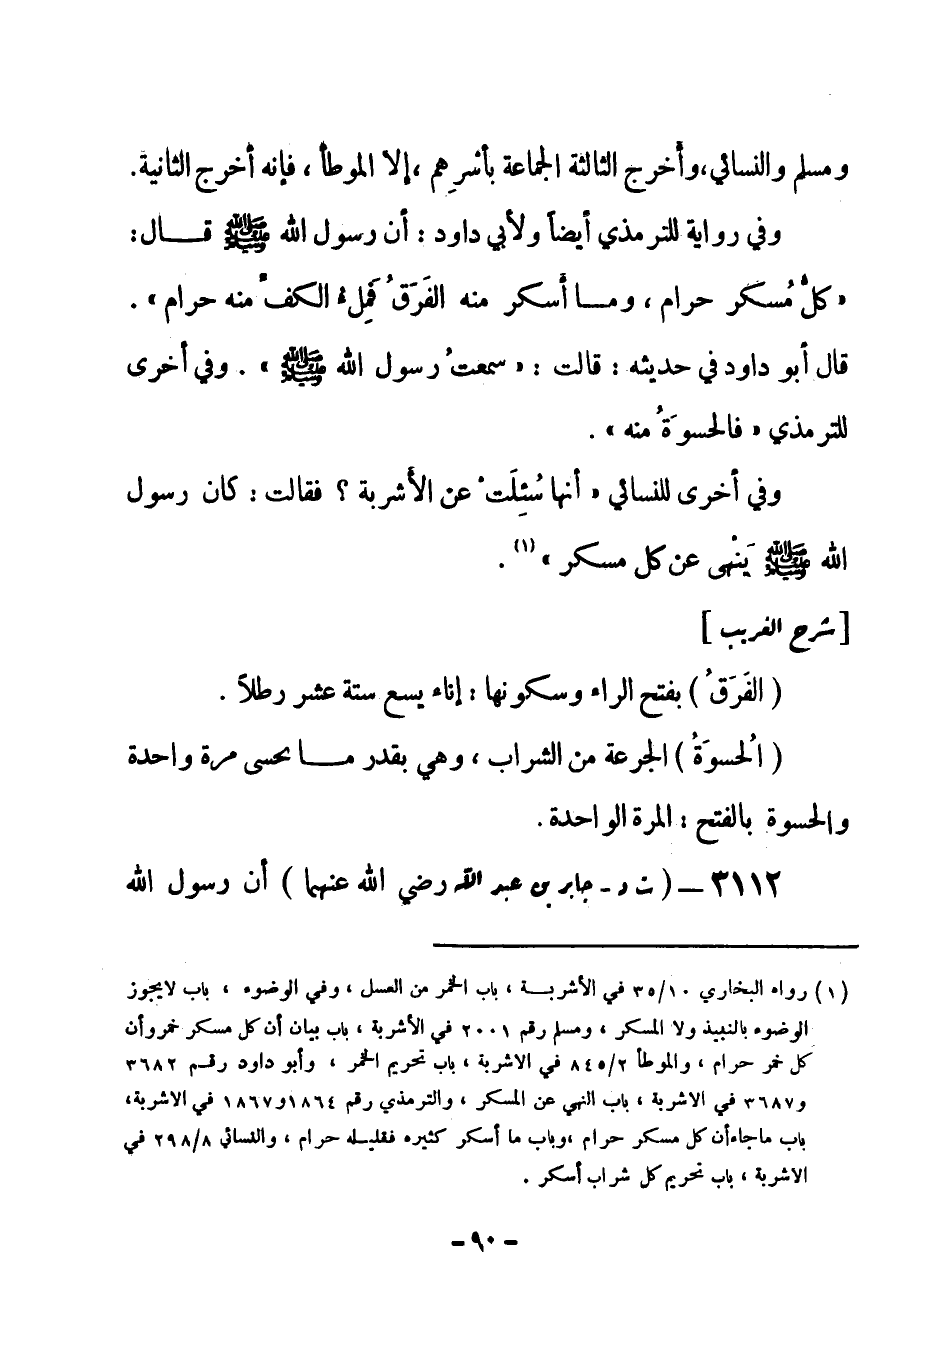 ومسلم والنسائي، وأخرج الثالثة الجماعة بأسرهم، إلا الموطأ، فإنه أخرج الثانية.
وفي رواية للترمذي أيضاً ولأبي داود : أن رسول الله ﷺ قـــال:
« كلُّ مُسكر حرام ، ومـــا أسكر منه الفَرَقُ فَمِلءُ الكفِّ منه حرام » .
قال أبو داود في حديثه : قالت : « سمعتُ رسول الله ﷺ » . وفي أخرى
للترمذي « فالحسوَةُ منه » .
وفي أخرى للنسائي « أنها سُئِلَتْ عن الأشربة ؟ فقالت : كان رسول
الله ﷺ يَنْهى عن كل مسكر » (١) .
[ شرح الغريب ]
( الفَرَقُ ) بفتح الراء وسكونها : إناء يسع ستة عشر رطلاً .
( الحُسوَةُ ) الجرعة من الشراب ، وهي بقدر مـــا يحسى مرة واحدة
والحسوة بالفتح : المرة الواحدة .
٣١١٢ – ( ت د - جابر بن عبد الله رضي الله عنهما ) أن رسول الله
(١) رواه البخاري ٣٥/١٠ في الأشربــة ، باب الخمر من العسل ، وفي الوضوء ، باب لايجوز
الوضوء بالنبيذ ولا المسكر ، ومسلم رقم ٢٠٠١ في الأشربة ، باب بيان أن كل مسكر خمر وأن
كل خمر حرام ، والموطأ ٨٤٥/٢ في الاشربة ، باب تحريم الخمر ، وأبو داود رقــم ٣٦٨٢
و٣٦٨٧ في الاشربة ، باب النهي عن المسكر ، والترمذي رقم ١٨٦٤ و١٨٦٧ في الاشربة،
باب ماجاء أن كل مسكر حرام ، وباب ما أسكر كثيره فقليله حرام ، والنسائي ٢٩٨/٨ في
الاشربة ، باب تحريم كل شراب أسكر .
- ٩٠ -